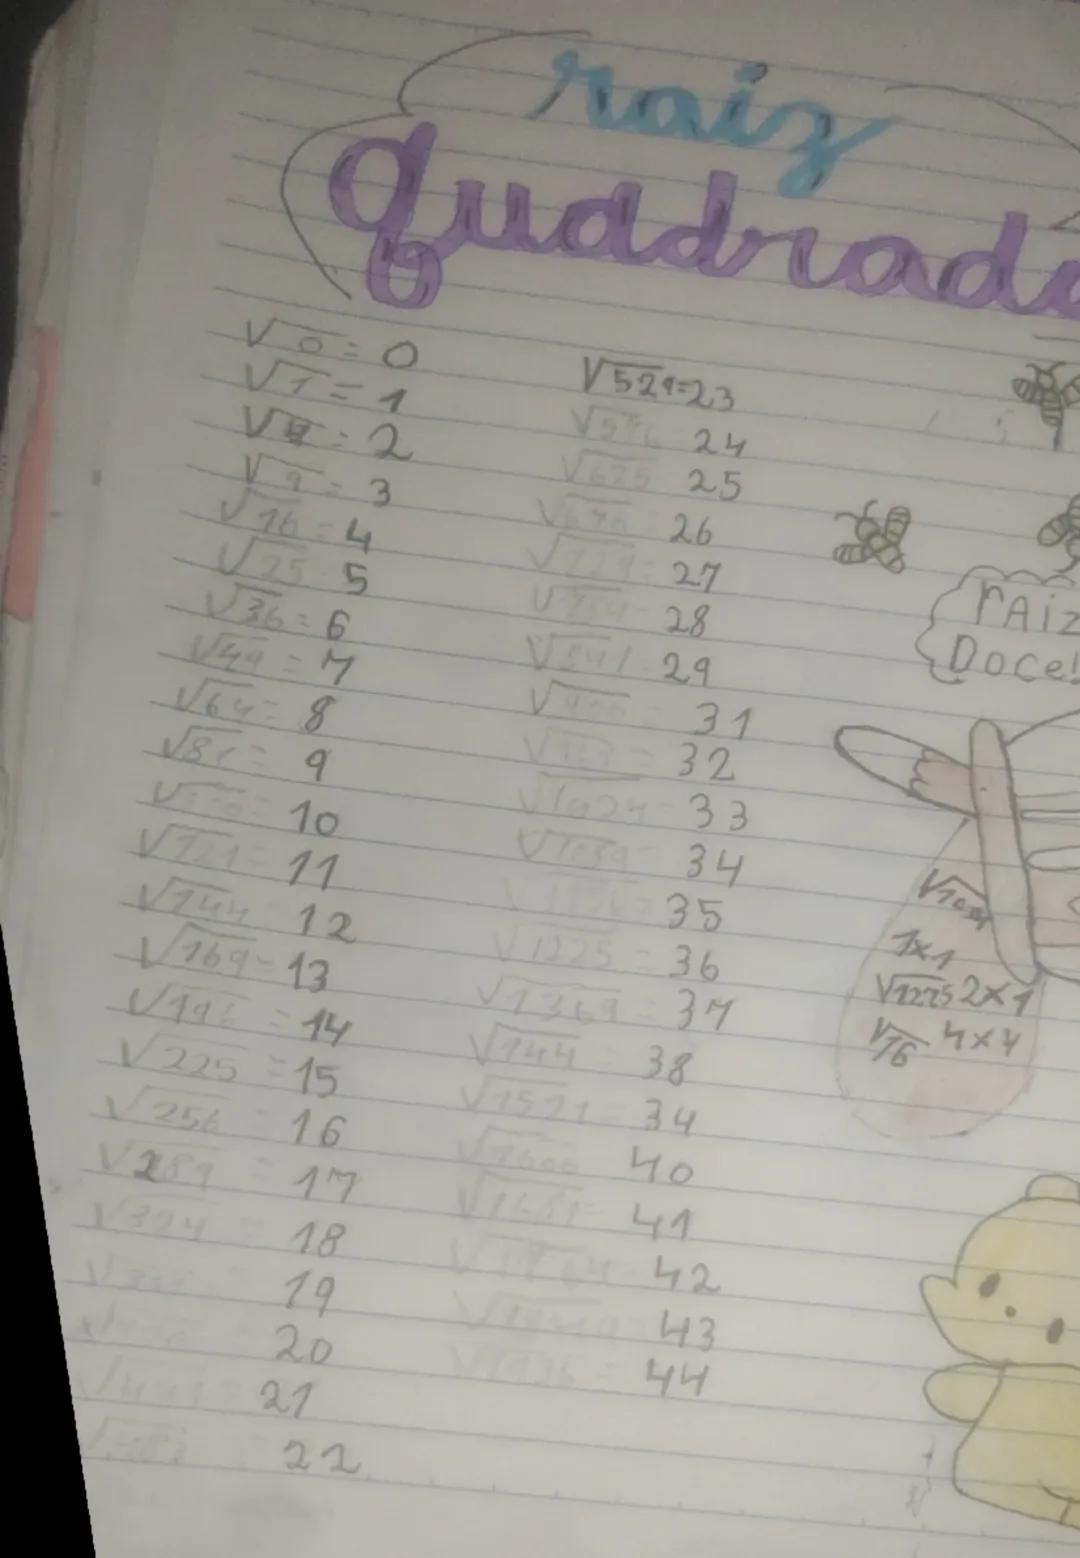 raiz
quadrad
√0 = 0
√1 = 1
√4 = 2
√9 = 3
√16 = 4
√25 5
√36 = 6
√49 = 7
√64 = 8
√81 = 9
10
√121 = 11
√144 12
√169 = 13
√196 = 14
√225 = 15
√256 16
√289 = 17
√324 18
19
20
√441 = 21
22
√529=23
√576 24
√625 25
√676 26
√729 = 27
28
√841 29
√900 = 31
32
√1024 = 33
√1089 = 34
= 35
√1225 = 36
√1369 = 37
√144 = 38
√1521 = 34
√1600 40
√1681 = 41
42
43
√1936 = 44
rAiz
Doce!
1x1
√1225 2x1
√16 4x4